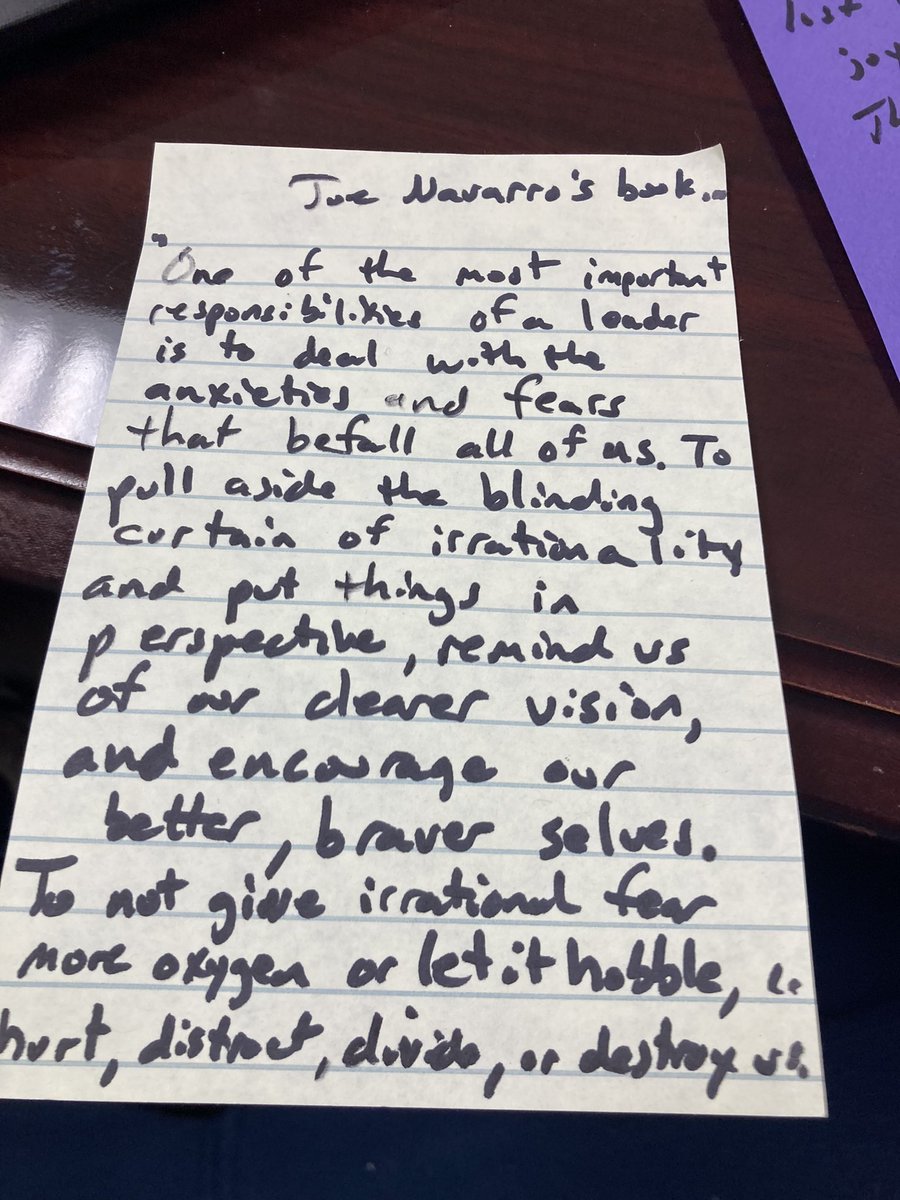 lost
joy
Th
Joe Navarro's book...
"One of the most important
responsibilities of a leader
is to deal with the
anxieties and fears
that befall all of us. To
pull aside the blinding
curtain of irrationality
and put things in
perspective, remind us
of our clearer vision,
and encourage our
better, braver selves.
To not give irrational fear
more oxygen or let it hobble,
hurt, distract, divide, or destroy us.